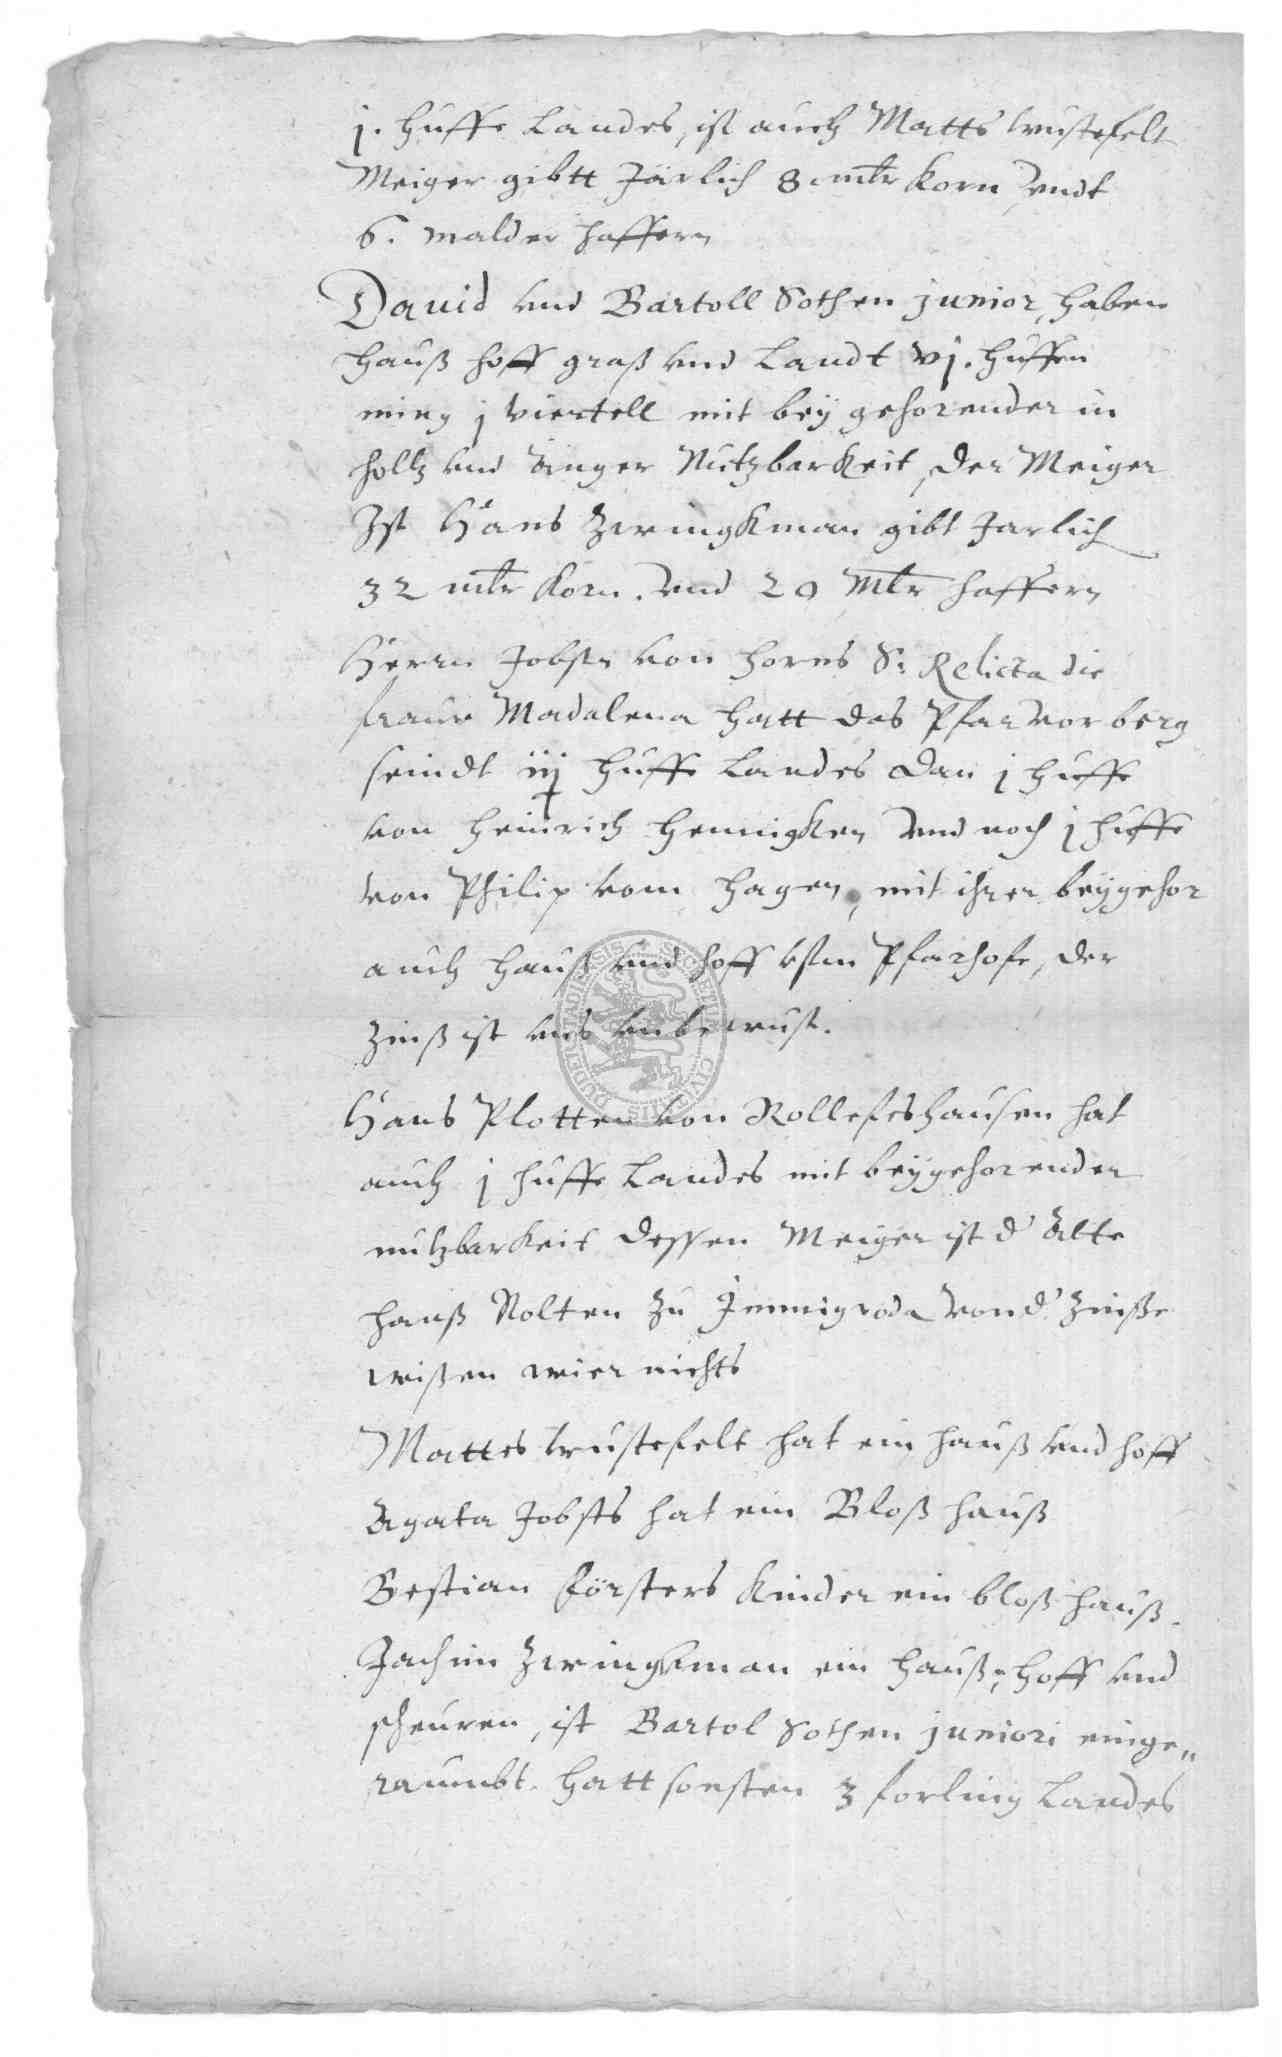 j. Huffe Landes, ist auch Matts wustefelt
Meiger gibtt Järlich 8 mltr Korn vndt
6. malder haffern
Dauid vnd Bartoll Sothen junior, haben
hauß hoff graß vnd Landt vj. Huffen
ming j viertell mit bey gehorender in
holtz vnd Änger Nutzbarkeit, der Meiger
Ist Hans Zwingkman gibt Jarlich
32 mltr Korn. vnd 20 Mltr haffern
Herrn Jobst von Horns S: Relicta die
frauw Madalena hatt das Pfar vor berg
seindt iij Huffe Landes dan j huffe
von Heinrich Hennigken vnd noch j huffe
von Philip vom Hagen, mit ihrer beygehor
auch hauß vnd hoff vfm Pfarhofe, der
Zinß ist vns vnbewust.
Hans Plotten von Rollefeshausen hat
auch j huffe Landes mit beygehorender
nutzbarkeit dessen Meiger ist d' Alte
hanß Nolten zu Immigroda von d' Zinße
wißen wier nichts
Mattes wustefelt hat ein hauß vnd hoff
Agata Jobsts hat ein Bloß hauß
Bestian Försters Kinder ein bloß hauß.
Jachim Zwingkman ein hauß, hoff vnd
scheuren, ist Bartol Sothen juniori einge„
raumbt. hatt sonsten 3 forling Landes